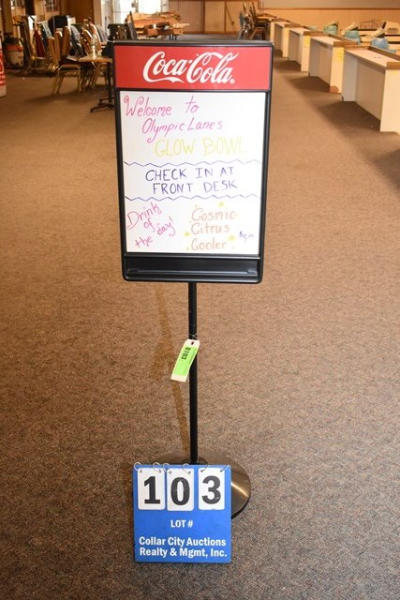 Coca-Cola
Welcome to
Olympic Lanes
GLOW BOWL
CHECK IN AT
FRONT DESK
Drink
of
the day!
Cosmic
Citrus
Cooler
103
LOT #
Collar City Auctions
Realty & Mgmt, Inc.